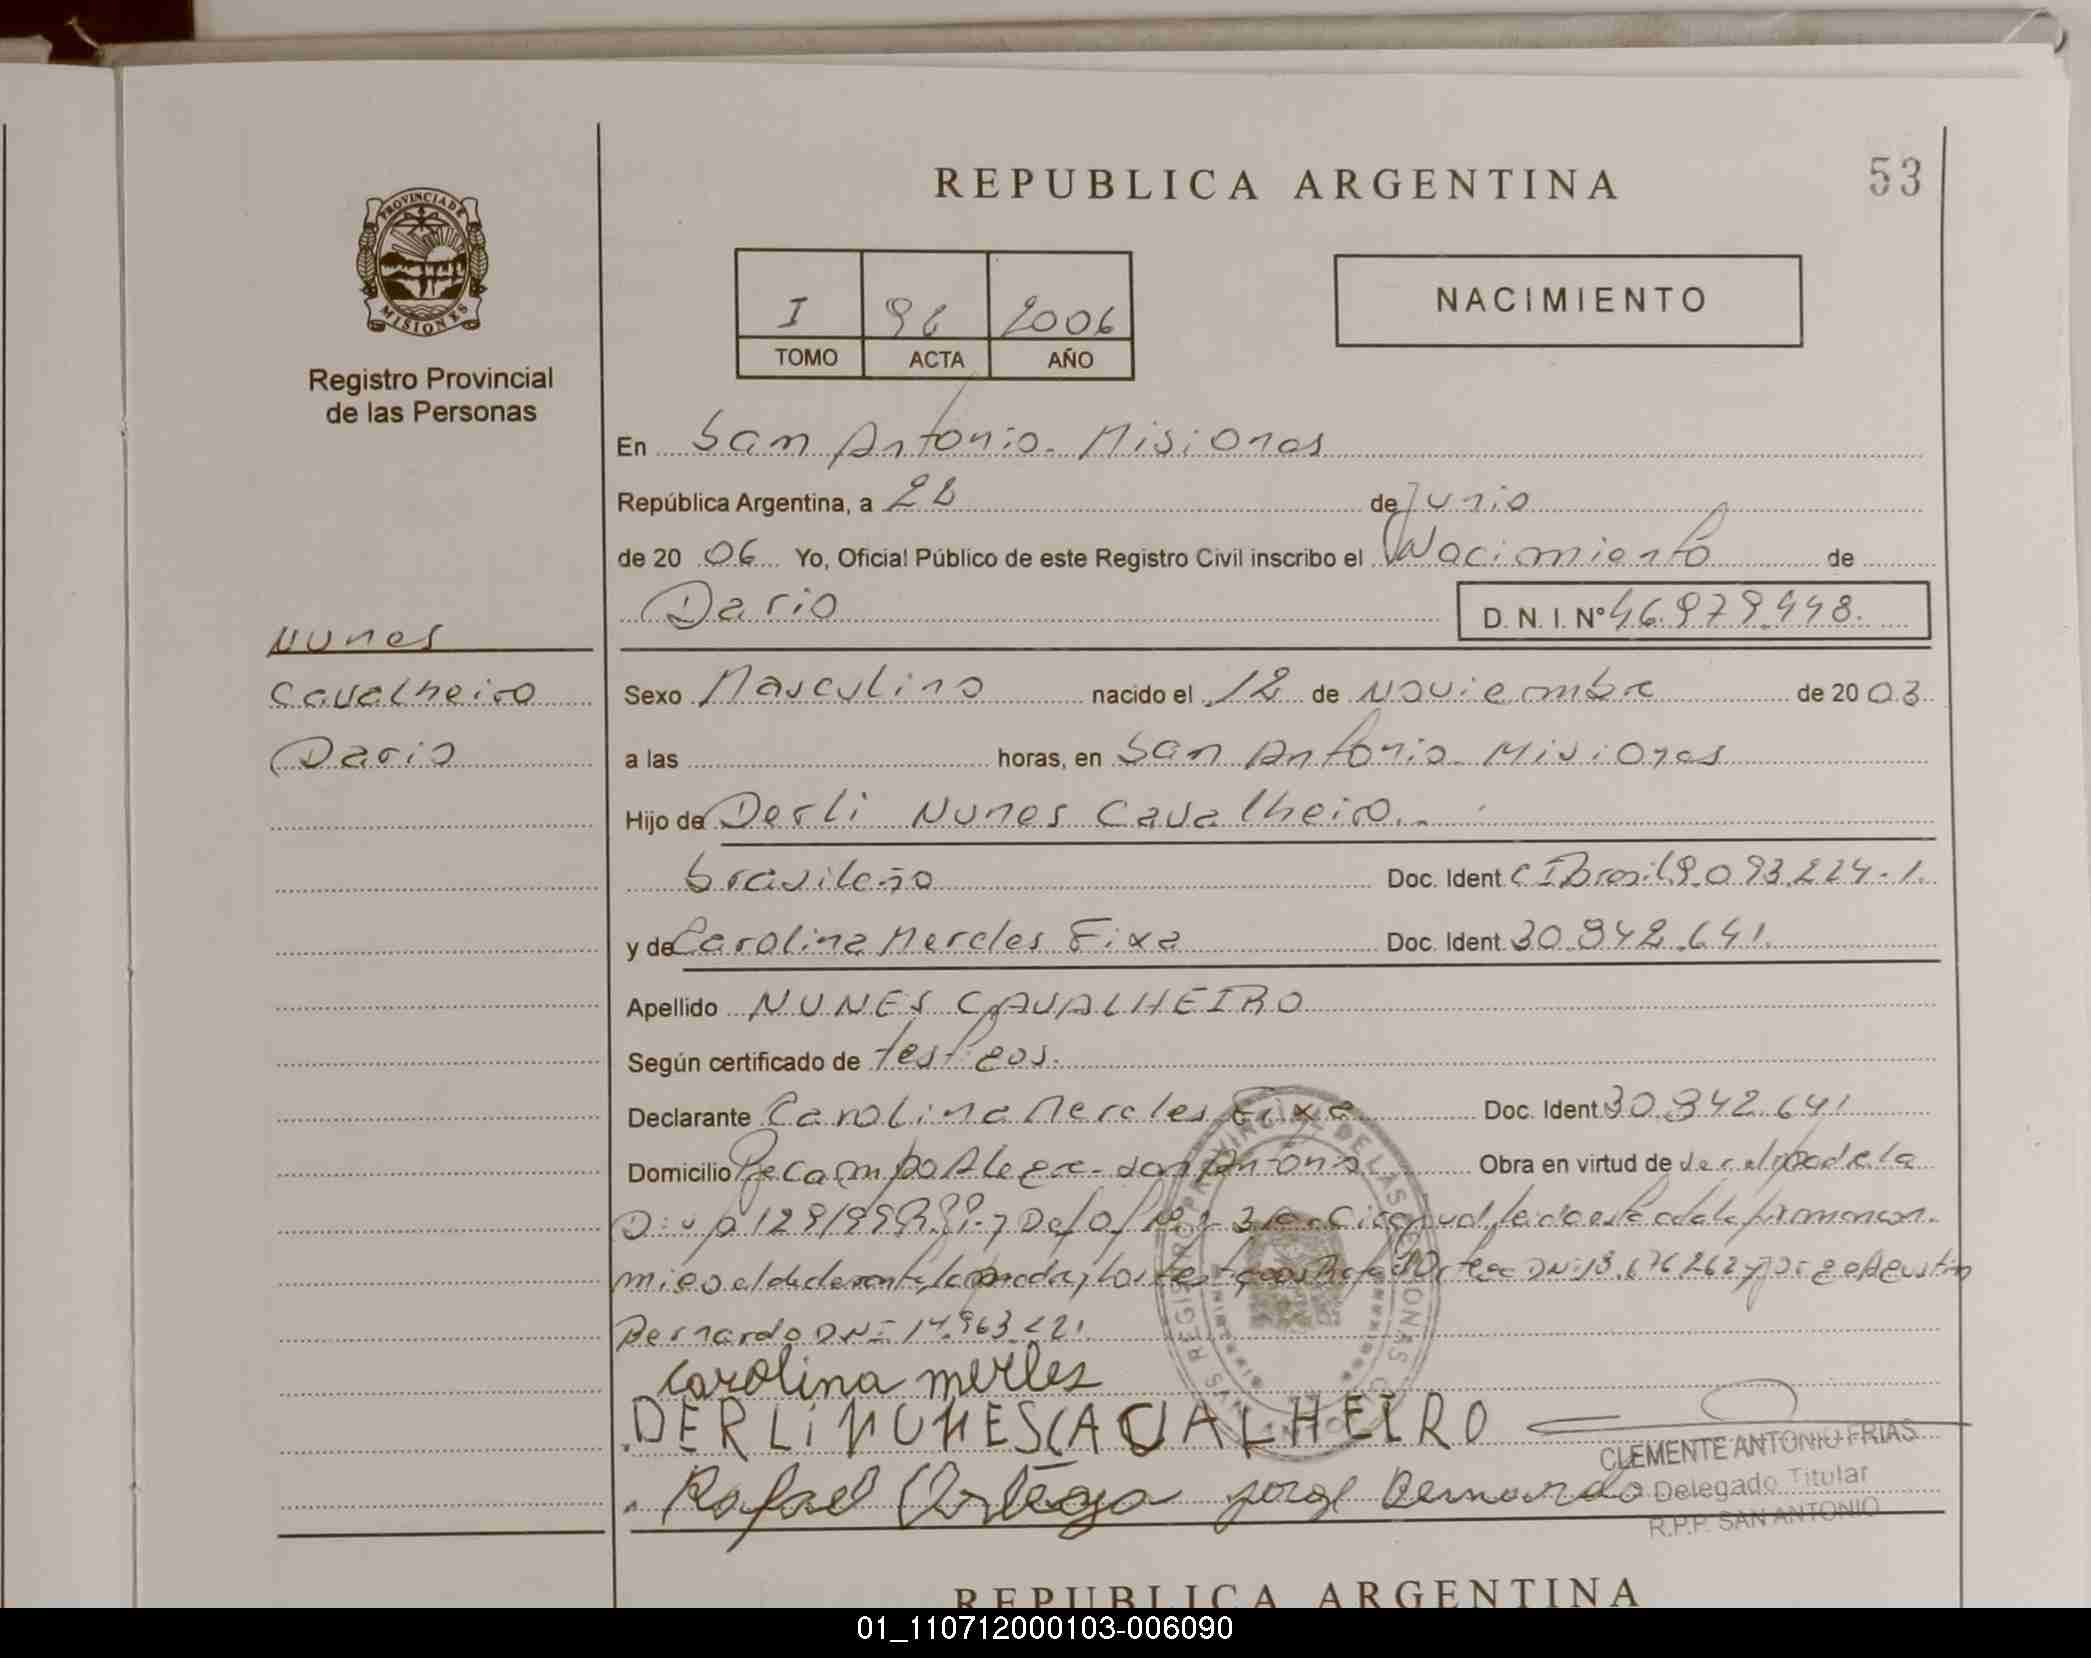 53
REPUBLICA ARGENTINA
PROVINCIA DE
MISIONES
Registro Provincial
de las Personas
I 96 2006
TOMO ACTA AÑO
NACIMIENTO
En San Antonio. Misiones
República Argentina, a 28 de Junio
de 20 06 Yo, Oficial Público de este Registro Civil inscribo el Nacimiento de
Dario D. N. I. Nº 46.979.448.
Nunes
Cavalheiro
Dario
Sexo Masculino nacido el 12 de Noviembre de 20 03
a las horas, en San Antonio. Misiones
Hijo de Derli Nunes Cavalheiro.
brasileño Doc. Ident. CI Brasil 9.093.224-1.
y de Carolina Mereles Fixa Doc. Ident. 30.842.641.
Apellido NUNES CAVALHEIRO
Según certificado de testigos.
Declarante Carolina Mereles Fixa Doc. Ident. 30.842.641
Domicilio Campo Alegre - San Antonio Obra en virtud de
Bernardo DNI 14.963.221.
carolina merles
DERLi NUNES CAVALHEIRO
Rafael Ortega jorge Bernardo
CLEMENTE ANTONIO FRIAS
Delegado Titular
R.P.P. SAN ANTONIO
REPUBLICA ARGENTINA
01_110712000103-006090